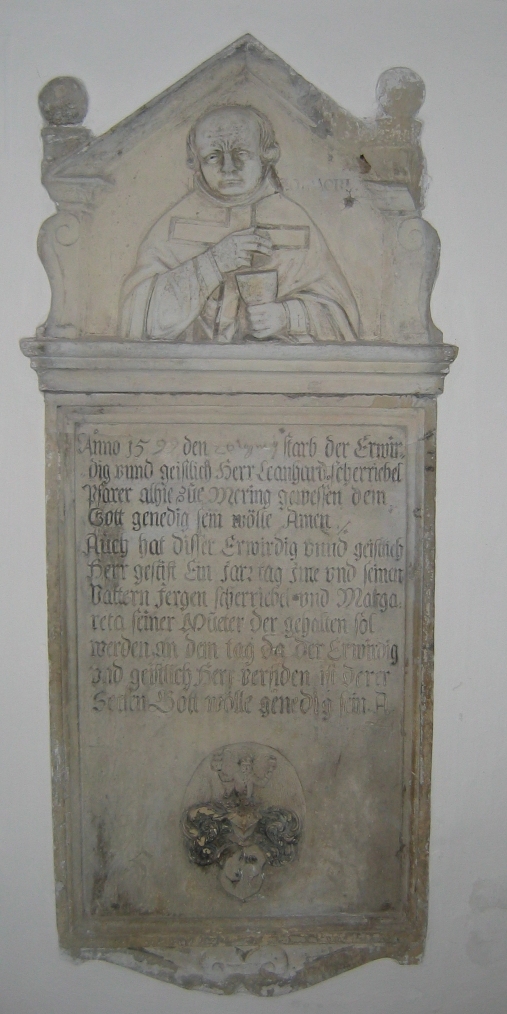 Anno 15 den starb der Erwir-
dig vnnd geistlich Herr Leonhard scherriebel
Pfarer alhie zue Mering gewessen dem
Gott genedig sein wölle Amen
Auch hat disser Erwirdig vnnd geistlich
Herr gestift Ein Jartag Ime vnd seinen
Vattern Jergen scherriebel vnd Marga-
reta seiner Mueter der gehalten sol
werden an dem tag da der Erwirdig
vnd geistlich Herr verschiden ist derer
Seelen Gott wölle genedig sein A